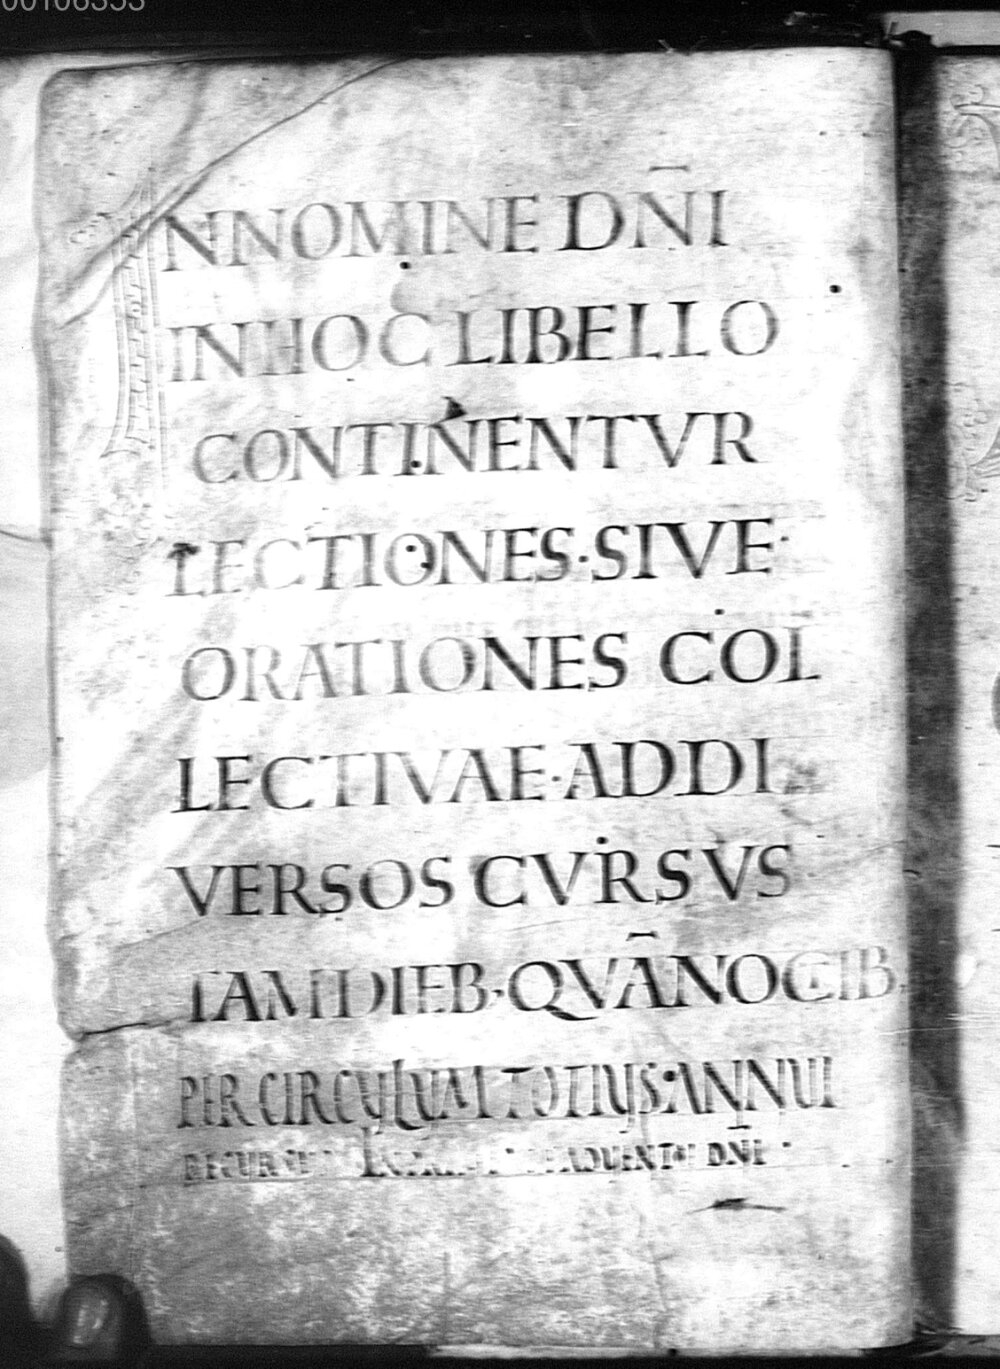 00106353
IN NOMINE DN̄I
IN HOC LIBELLO
CONTINENTVR
LECTIONES·SIVE·
ORATIONES COL
LECTIVAE·ADDI
VERSOS CVRSVS
TAM DIEB·QVĀ NOCTIB·
PER CIRCVLUM TOTIUS·ANNUI
ADUENTU DN̄I·